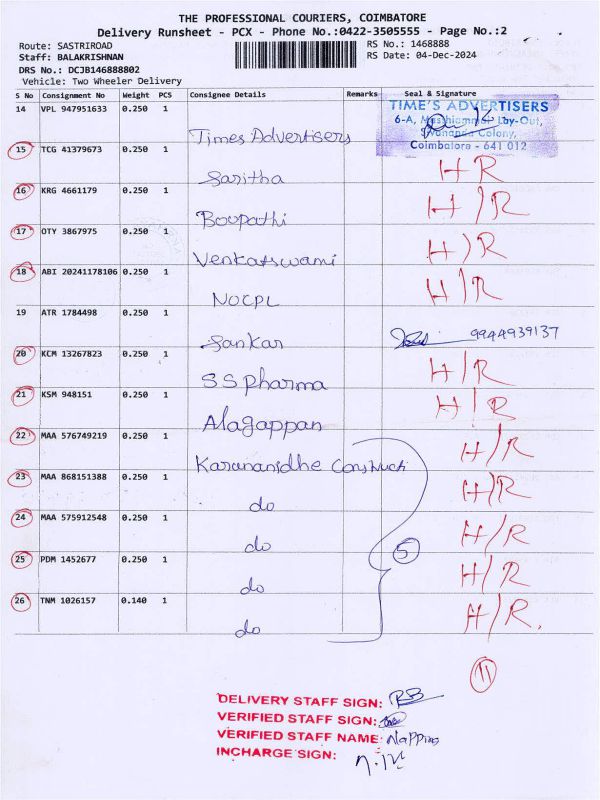 THE PROFESSIONAL COURIERS, COIMBATORE
Delivery Runsheet - PCX - Phone No.:0422-3505555 - Page No.:2
Route: SASTRIROAD
RS No.: 1468888
Staff: BALAKRISHNAN
RS Date: 04-Dec-2024
DRS No.: DCJB146888802
Vehicle: Two Wheeler Delivery
S No Consignment No Weight PCS Consignee Details Remarks Seal & Signature
14 VPL 947951633 0.250 1 Times Advertisers
TIME'S ADVERTISERS
6-A, Lay-Out,
Colony,
Coimbatore - 641 012
15 TCG 41379673 0.250 1 Saritha H R
16 KRG 4661179 0.250 1 Boopathi H/R
17 OTY 3867975 0.250 1 Venkatswami H/R
18 ABI 20241178106 0.250 1 NOCPL H/R
19 ATR 1784498 0.250 1 Sankar 9944939137
20 KCM 13267823 0.250 1 SS Pharma H/R
21 KSM 948151 0.250 1 Alagappan H/R
22 MAA 576749219 0.250 1 Karunanidhe Construch H/R
23 MAA 868151388 0.250 1 do H/R
24 MAA 575912548 0.250 1 do H/R
25 PDM 1452677 0.250 1 do H/R
26 TNM 1026157 0.140 1 do H/R.
5
11
DELIVERY STAFF SIGN:
VERIFIED STAFF SIGN:
VERIFIED STAFF NAME:
INCHARGE SIGN: